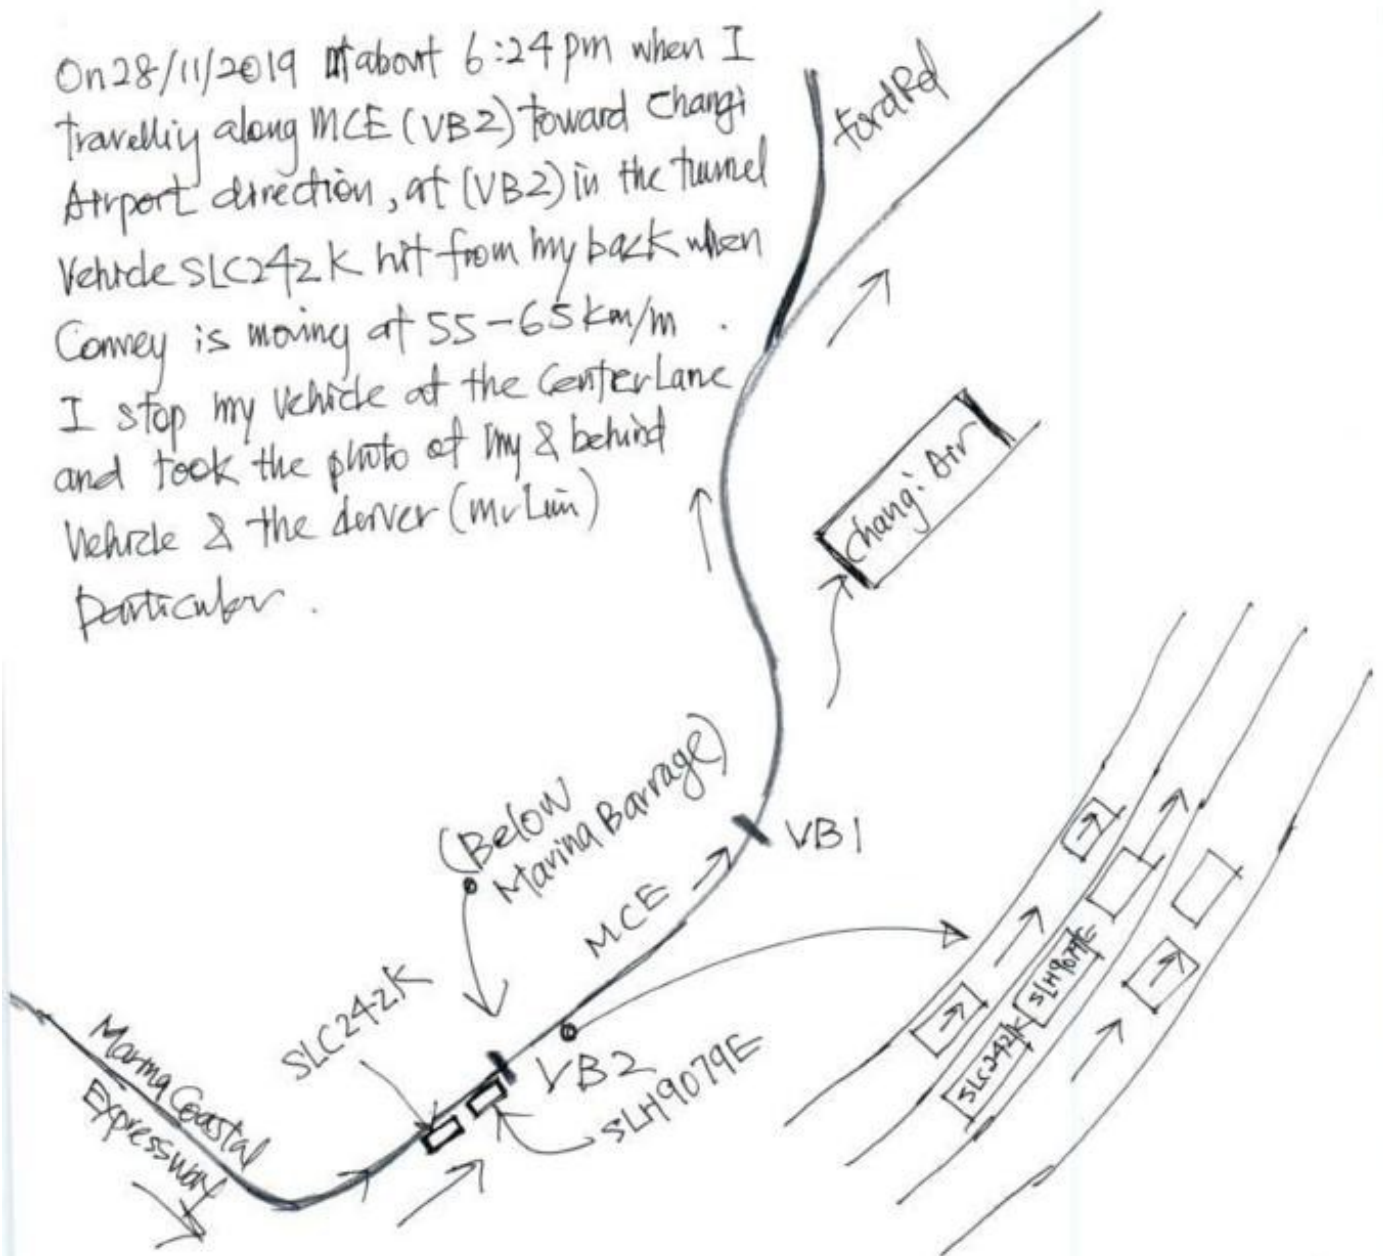 On 28/11/2019 at about 6:24pm when I
travelliy along MCE (VB2) toward Changi
Airport direction, at (VB2) in the tunnel
Vehicle SLC242K hit from my back when
Convey is moving at 55-65km/m .
I stop my vehicle at the Center Lane
and took the photo of my & behind
Vehicle & the derver (Mr Lim)
Particular .
ford Rd
Changi Air
(Below
Marina Barrage)
VB1
MCE
SLC242K
VB2
SLH9079E
Marina Coastal
Expressway
SLH9079E
SLC242K